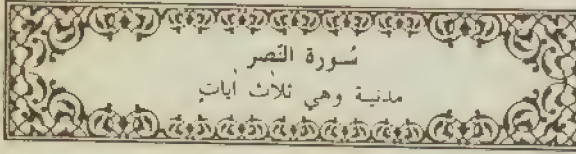 سُورة النَصر
مدنية وهي ثلاث أيات